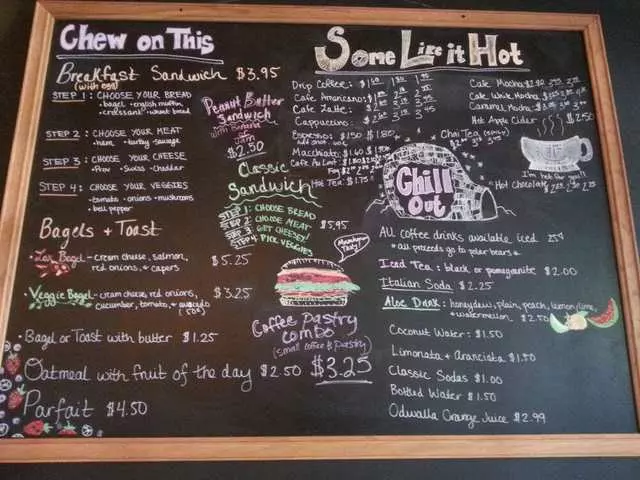 Chew on This
Breakfast Sandwich $3.95
(with egg)
STEP 1: CHOOSE YOUR BREAD
• bagel • english muffin
• croissant • wheat bread
STEP 2: CHOOSE YOUR MEAT
• ham • turkey • sausage
STEP 3: CHOOSE YOUR CHEESE
• Prov • Swiss • Cheddar
STEP 4: CHOOSE YOUR VEGGIES
• tomato • onions • mushrooms
• bell pepper
Peanut Butter
Sandwich
with Banana
or
Jam
$2.50
Classic
Sandwich
STEP 1: CHOOSE BREAD
STEP 2: CHOOSE MEAT
STEP 3: GET CHEESEY!
STEP 4: PICK VEGGIES
$5.95
Bagels + Toast
• Lox Bagel - cream cheese, salmon, $5.25
red onions, + capers
• Veggie Bagel - cream cheese, red onions, $3.25
cucumber, tomato, + avocado
(50¢)
• Bagel or Toast with butter $1.25
Oatmeal with fruit of the day $2.50
Parfait $4.50
Mmmmm
Tasty!
Coffee Pastry
Combo
(small coffee & pastry)
$3.25
Some Like it Hot
Drip Coffee:
Cafe Americano:
Cafe Latte:
Cappuccino:
Espresso: $1.50 $1.80
Macchiato: $1.60
Cafe Au Lait
Hot Tea: $1.75
Cafe Mocha
Cafe White Mocha
Caramel Mocha
Hot Apple Cider $2.50
Chai Tea (spicy)
I'm hot like you!!
Hot Chocolate
Chill
Out
All coffee drinks available iced 25¢
* all proceeds go to polar bears *
Iced Tea: black or pomegranite $2.00
Italian Soda $2.25
Aloe Drink: honeydew, plain, peach, lemon/lime,
+ watermelon $2.50
Coconut Water: $1.50
Limonata + Aranciata $1.50
Classic Sodas $1.00
Bottled Water $1.50
Odwalla Orange Juice $2.99